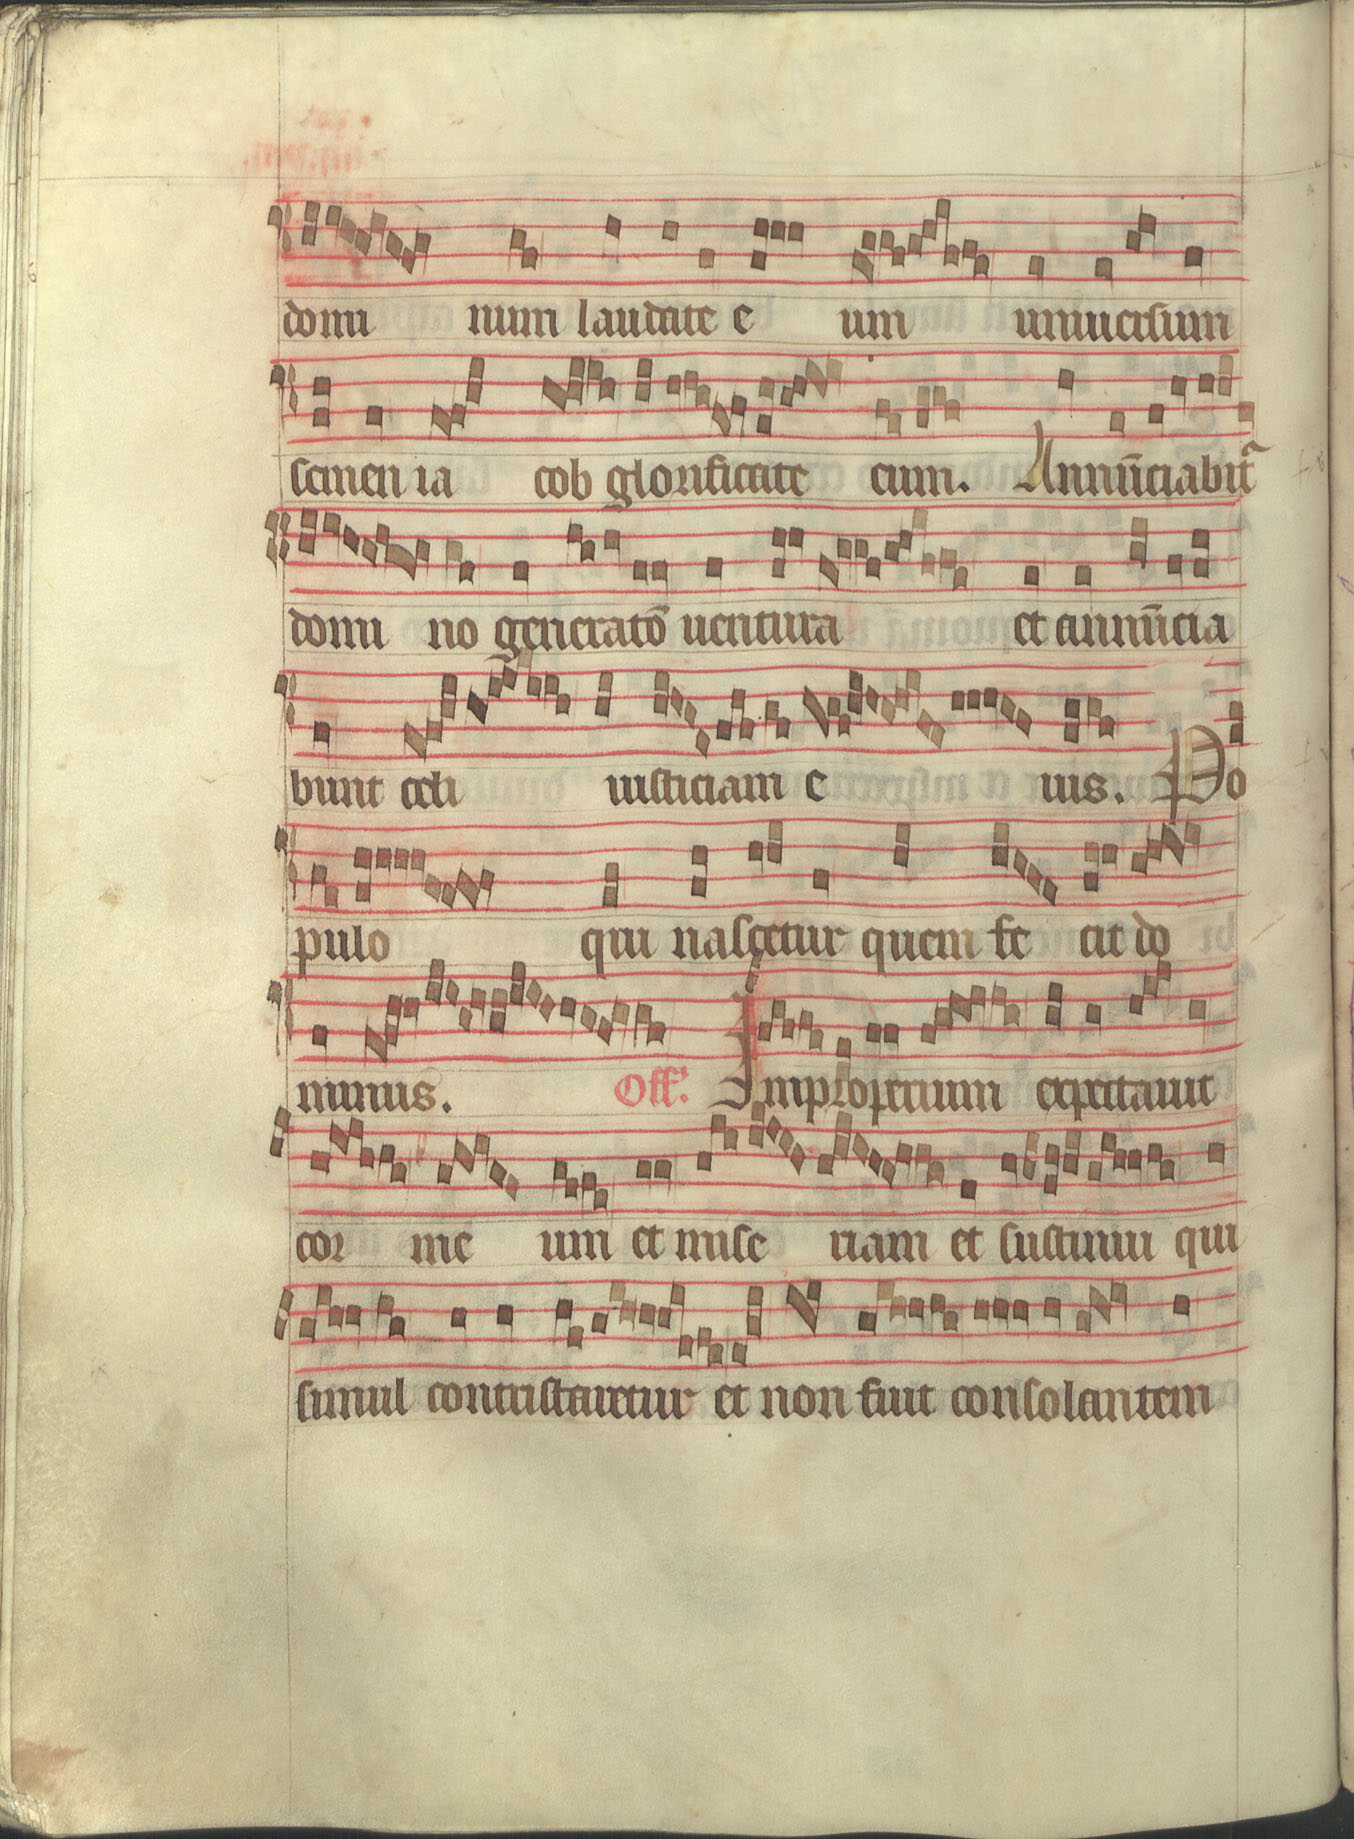 domi num laudate e um uniuersum
semen ia cob glorificate eum. Annu̅ciabit᷑
domi no generato̅ uentura et annu̅cia
bunt celi iusticiam e ius. Po
pulo qui nascetur quem fe cit do
minus. Off. Improperium expectauit
cor me um et mise riam et sustinui qui
simul contristaretur et non fuit consolantem